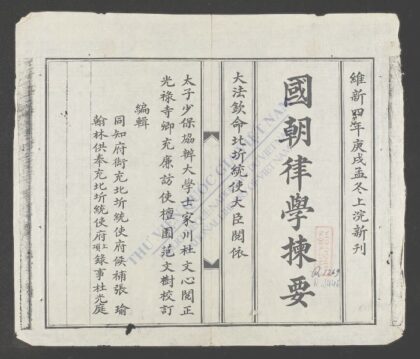 維新四年庚戌孟冬上浣新刊
國朝律學揀要
大法欽命北圻統使大臣閱依
太子少保協辦大學士家川杜文心閱正
光祿寺卿充廉訪使檀園范文樹校訂
編輯
同知府銜充北圻統使府候補張瑜
翰林供奉充北圻統使府錄事杜光庭
R.1269